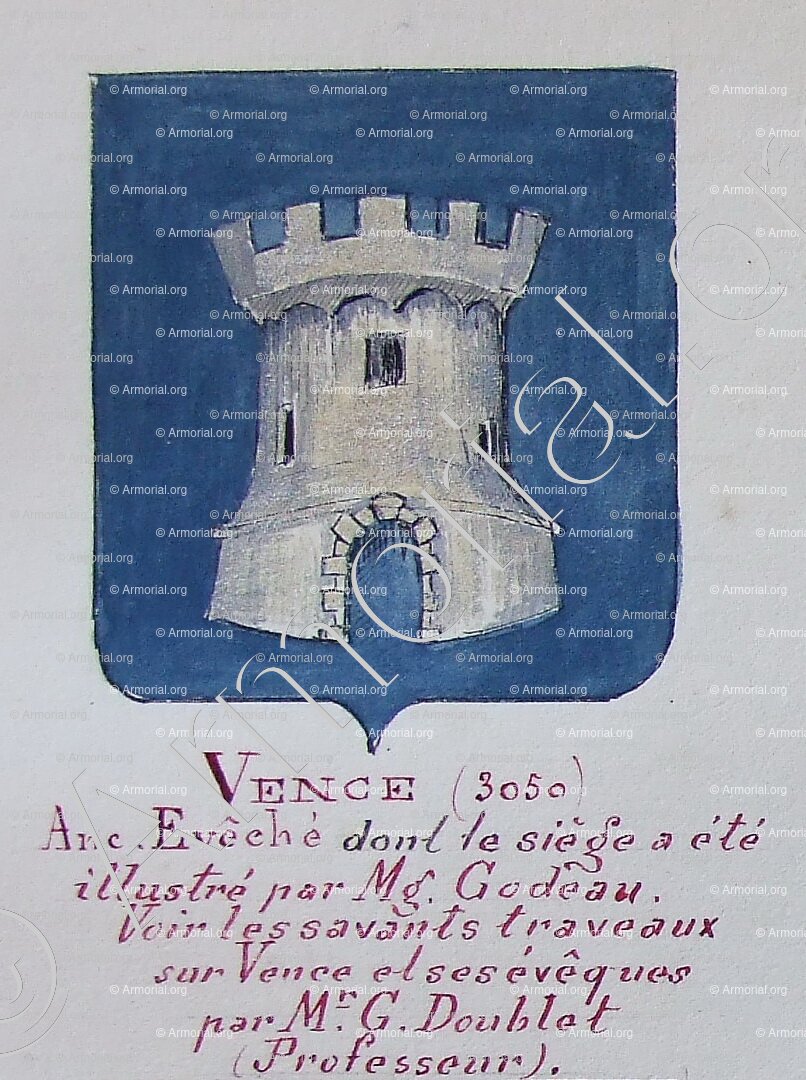 VENCE (3050)
Anc. Evêché dont le siège a été
illustré par Mg. Godeau.
Voir les savants traveaux
sur Vence et ses évêques
par Mr. G. Doublet
(Professeur).
© Armorial.org
Armorial.org